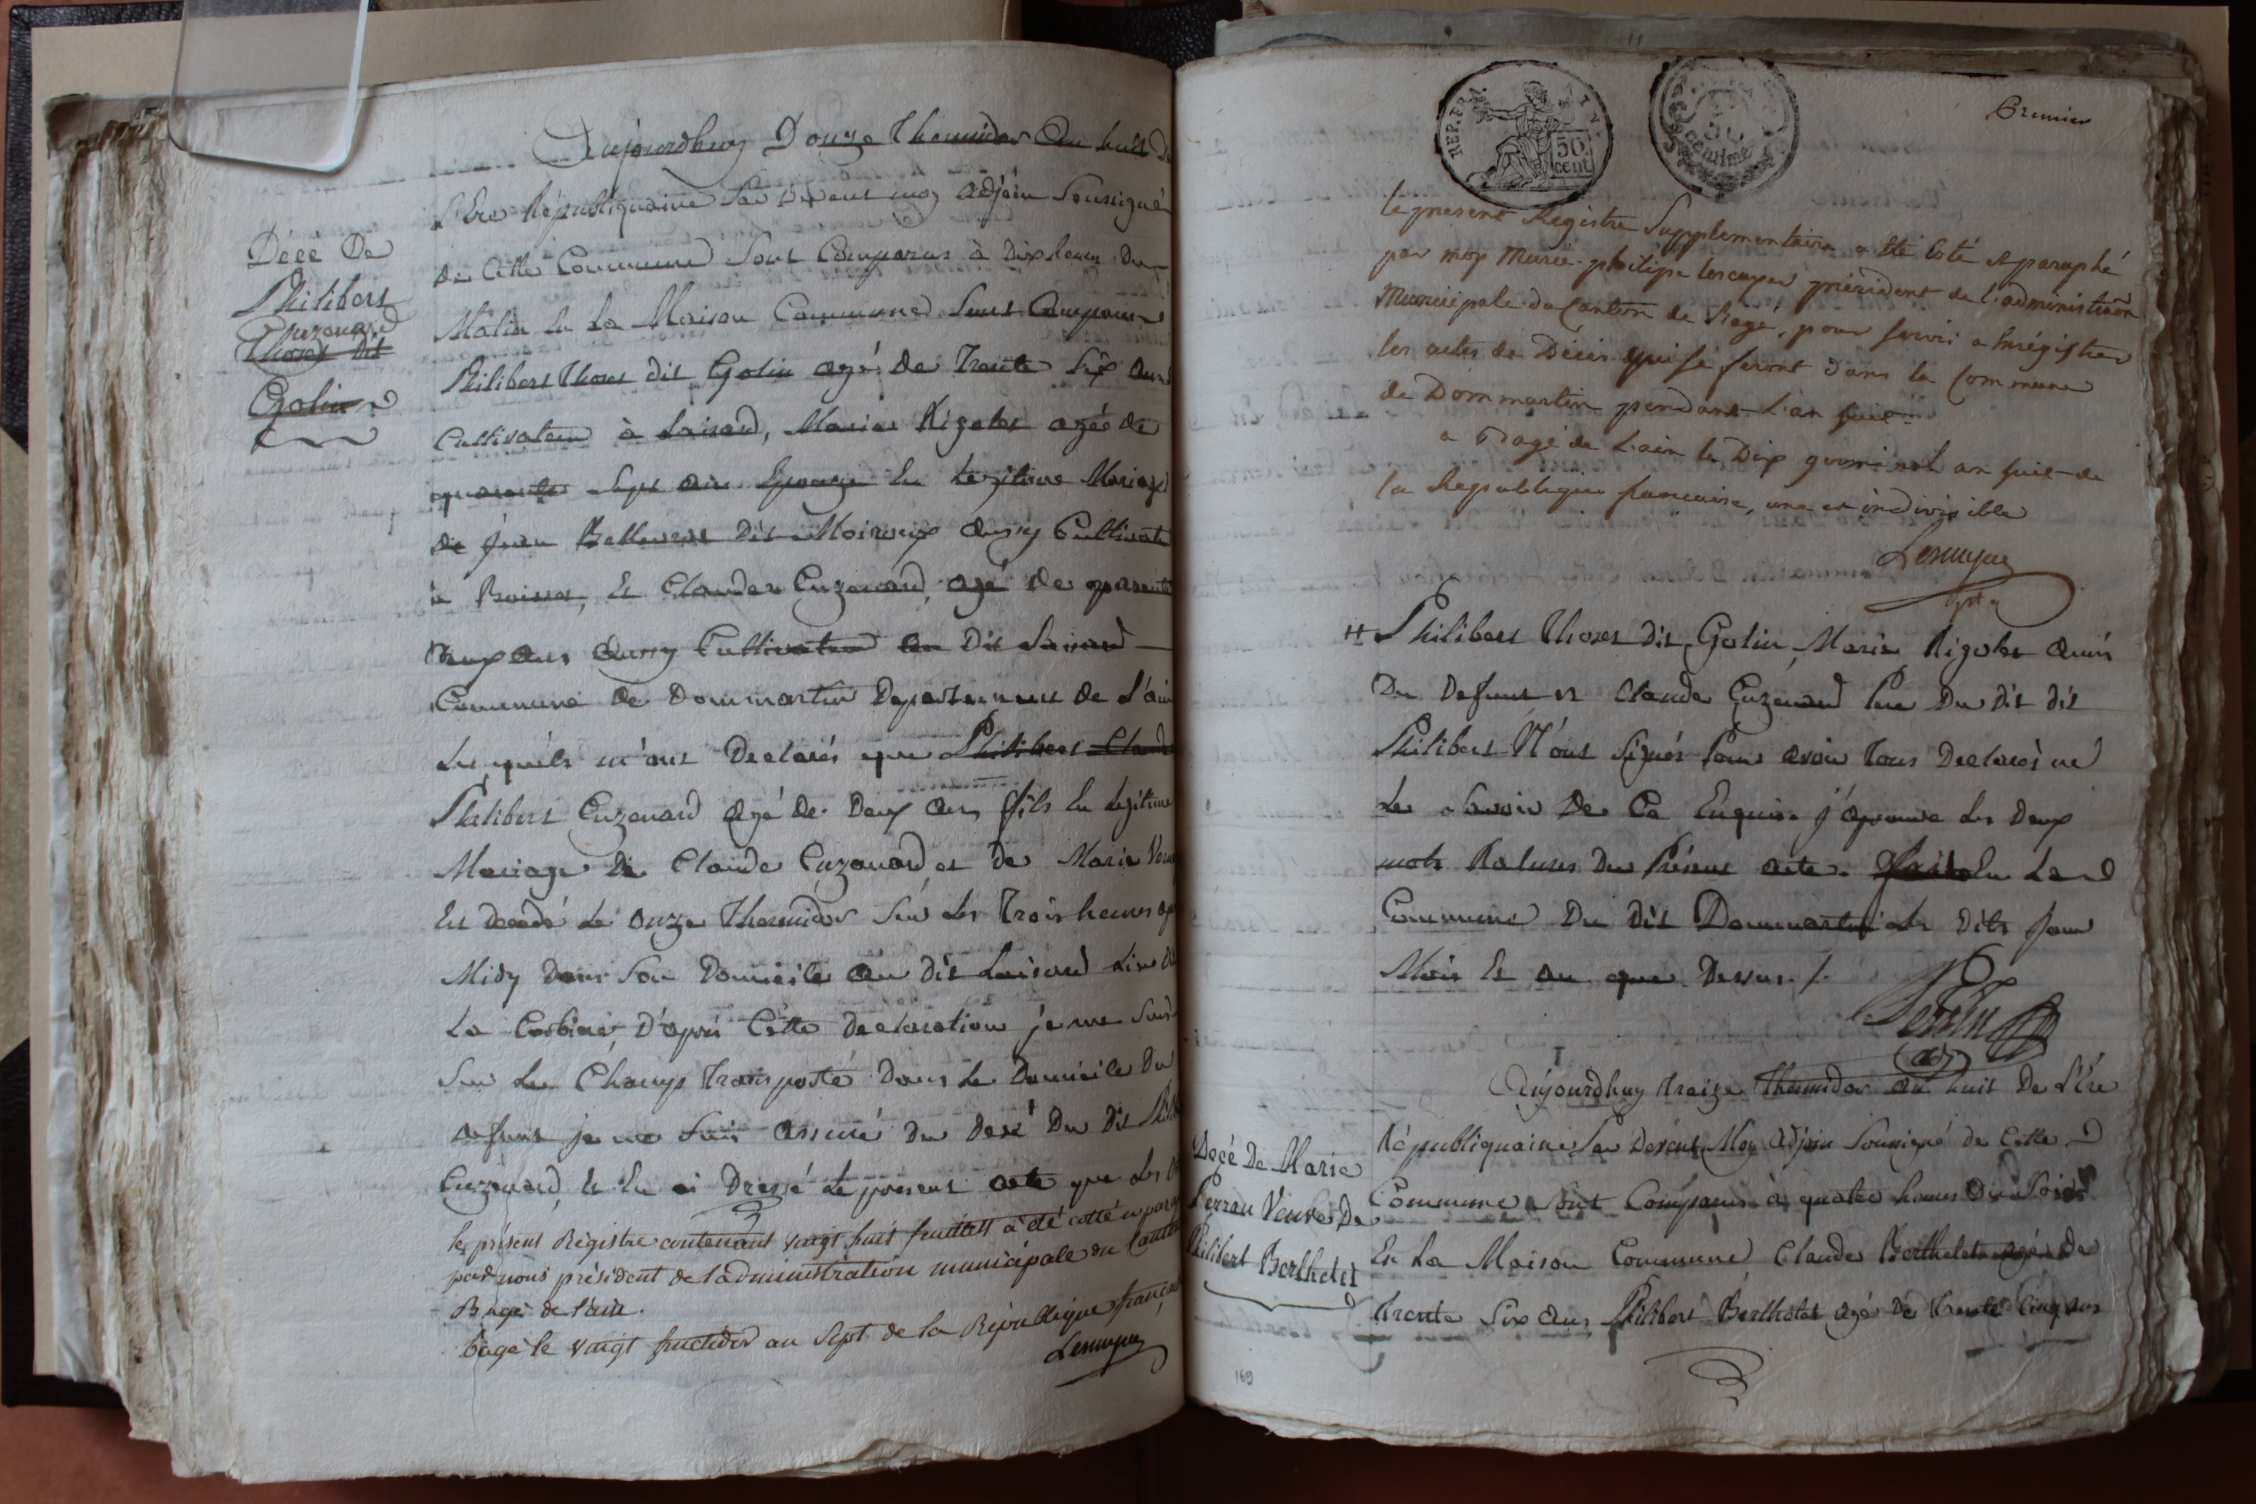 Aujourdhuy Douze Thermidor an huit de
L'Ere Républiquaine Par Devant moy adjoin Soussigné
de Cette Commune Sont Comparus à Dix heures du
Matin En La Maison Commune Sont Comparus
Philibert Thoret dit Golin agé de Trente Six ans
Cultivateur à Laisard, Marie Rigolet agée de
quarante Sept ans Epouze En Legitime Mariage
de Jean dit Moiroux aussy Cultivateur
à Boissa, Et Claude Cuzenard, agé de quarente
Deux ans aussy Cultivateur au Dit Laisard
Commune de Dommartin Departement de L'ain
Les quels m'ont Declarés que Philibert Claude
Philibert Cuzenard agé de Deux ans fils En Legitime
Mariage de Claude Cuzenard et de Marie
Est decedé Le onze Thermidor Sur Les Trois heures
Midy Dans Son Domicile au Dit Laisard Lieu de
La Corbière, D'apres Cette declaration je me Suis
Sur Le Champs Transporté Dans Le Domicile Du
defunt je me Suis assuré du decé Du Dit
Cuzenard, Et En ai Dressé Le present acte que Les
Décé De
Philibert
Cuzenard
Thoret Dit
Golin
le présent Registre contenant vingt huit feuillets a été cotté et
par nous président de l'administration municipale du Canton
Bagé de l'ain.
Bagé le vingt fructidor an Sept de la République française
Lescuyer
REP. FRA.
50
cent
50
centime
Premier
le present Registre Supplementaire a été Coté et paraphé
par moy Marie philipe Lescuyer président de l'administration
Municipale du Canton de Bagé, pour servir a Enrégistrer
les actes de Décès qui se feront dans la Commune
de Dommartin pendant L'an huit
a Bagé de L'ain le Dix germinal an huit de
la Republique francaise, une et indivisible
Lescuyer
Philibert Thoret dit Golin, Marie Rigolet amis
Du Defunt et Claude Cuzenard Pere Du dit dit
Philibert N'ont Signés Pour avoir Tous Declarés ne
Le Savoir De Ce Enquis. j'aprouve Les Deux
mots Ratures Du Présent acte. fait En La
Commune Du Dit Dommartin Les Dits Jour
Mois Et an que Dessus ./.
adj
Aujourdhuy Treize Thermidor an huit De L'Ere
Républiquaine Par Devant Moy adjoin Soussigné de Cette
Commune Sont Comparus à quatre heures Du Soir
En La Maison Commune Claude Berthelet agé de
Trente Six ans, Philibert Berthelet agé De Trente Cinq ans
Decé De Marie
Perrau Veuve De
Philibert Berthelet
169